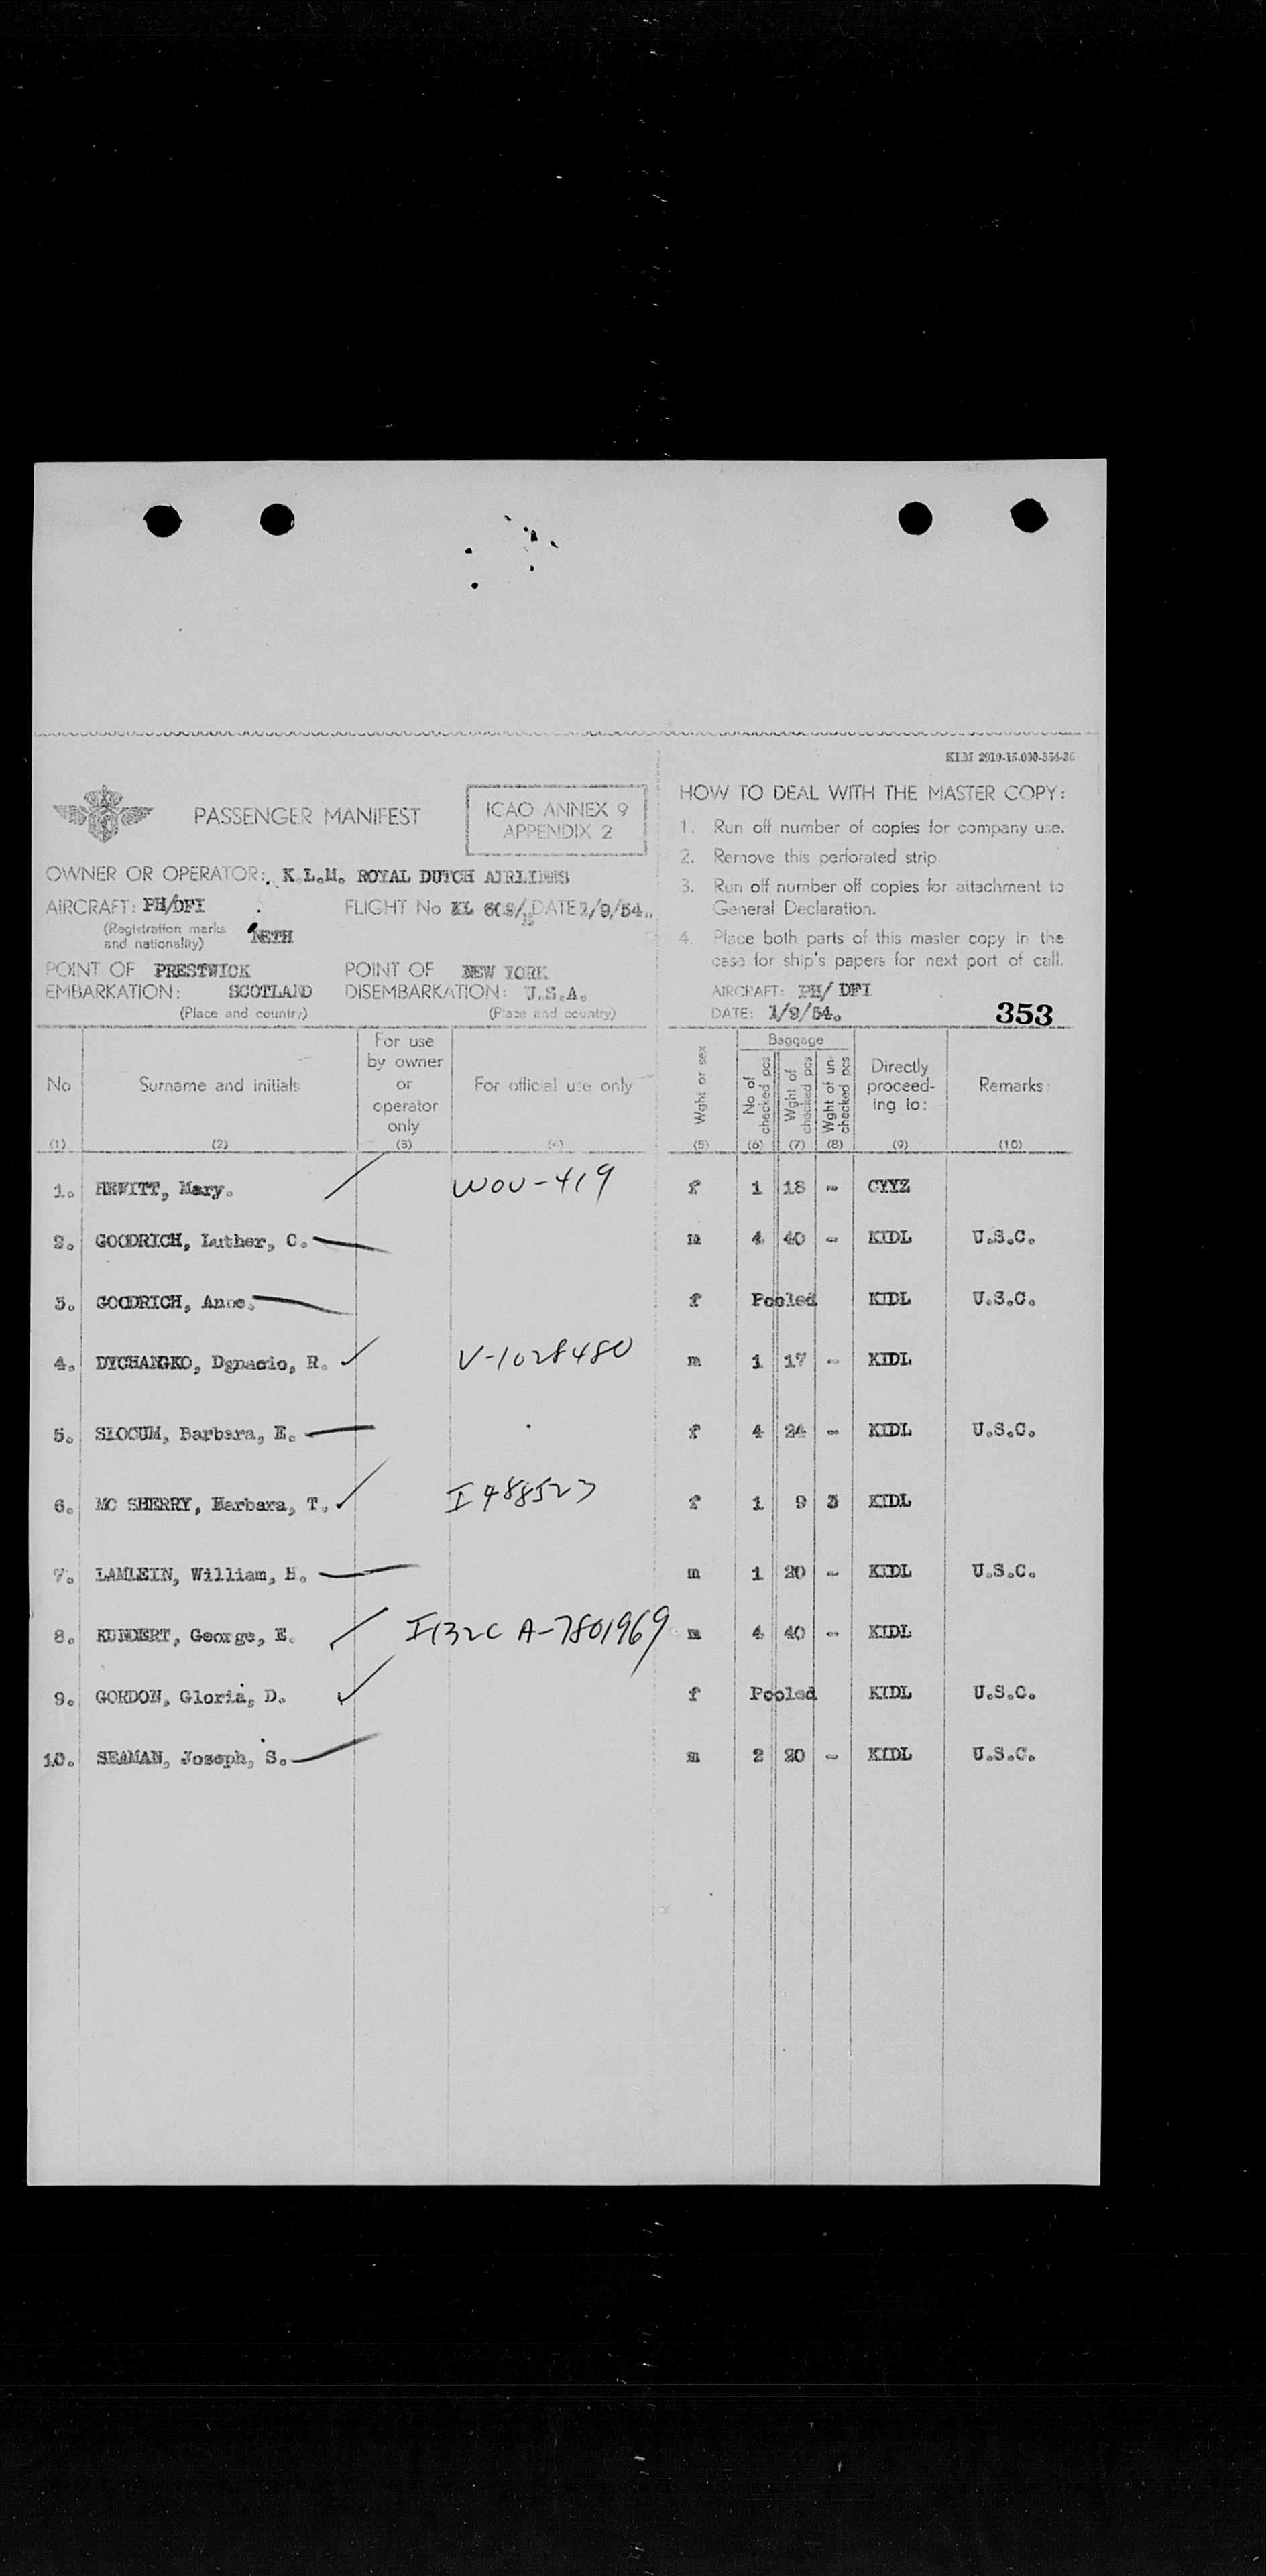 KLM 2910-15.000-354-36
PASSENGER MANIFEST
ICAO ANNEX 9
APPENDIX 2
OWNER OR OPERATOR: K.L.M. ROYAL DUTCH AIRLINES
AIRCRAFT: PH/DFI
FLIGHT No KL DATE 1/9/54.
(Registration marks
and nationality)
NETH
POINT OF PRESTWICK
EMBARKATION: SCOTLAND
(Place and country)
POINT OF NEW YORK
DISEMBARKATION: U.S.A.
(Place and country)
HOW TO DEAL WITH THE MASTER COPY:
1. Run off number of copies for company use.
2. Remove this perforated strip
3. Run off number off copies for attachment to
General Declaration.
4. Place both parts of this master copy in the
case for ship's papers for next port of call.
AIRCRAFT: PH/ DFI
DATE: 1/9/54.
353
No (1)
Surname and initials (2)
For use by owner or operator only (3)
For official use only (4)
Wght or sex (5)
Baggage
No of checked pcs (6)
Wght of checked pcs (7)
Wght of un-checked pcs (8)
Directly proceed-ing to: (9)
Remarks: (10)
1. HEWITT, Mary. WOU-419 f 1 18 - CYYZ
2. GOODRICH, Luther, C. m 4 40 - KIDL U.S.C.
3. GOODRICH, Anne. f Pooled KIDL U.S.C.
4. DYCHANGKO, Dgnacio, R. V-1028480 m 1 17 - KIDL
5. SLOCUM, Barbara, E. f 4 24 - KIDL U.S.C.
6. MC SHERRY, Barbara, T. I488523 f 1 9 3 KIDL
7. LAMLEIN, William, H. m 1 20 - KIDL U.S.C.
8. KUNDERT, George, E. I132C A-7801969 m 4 40 - KIDL
9. GORDON, Gloria, D. f Pooled KIDL U.S.C.
10. SEAMAN, Joseph, S. m 2 20 - KIDL U.S.C.